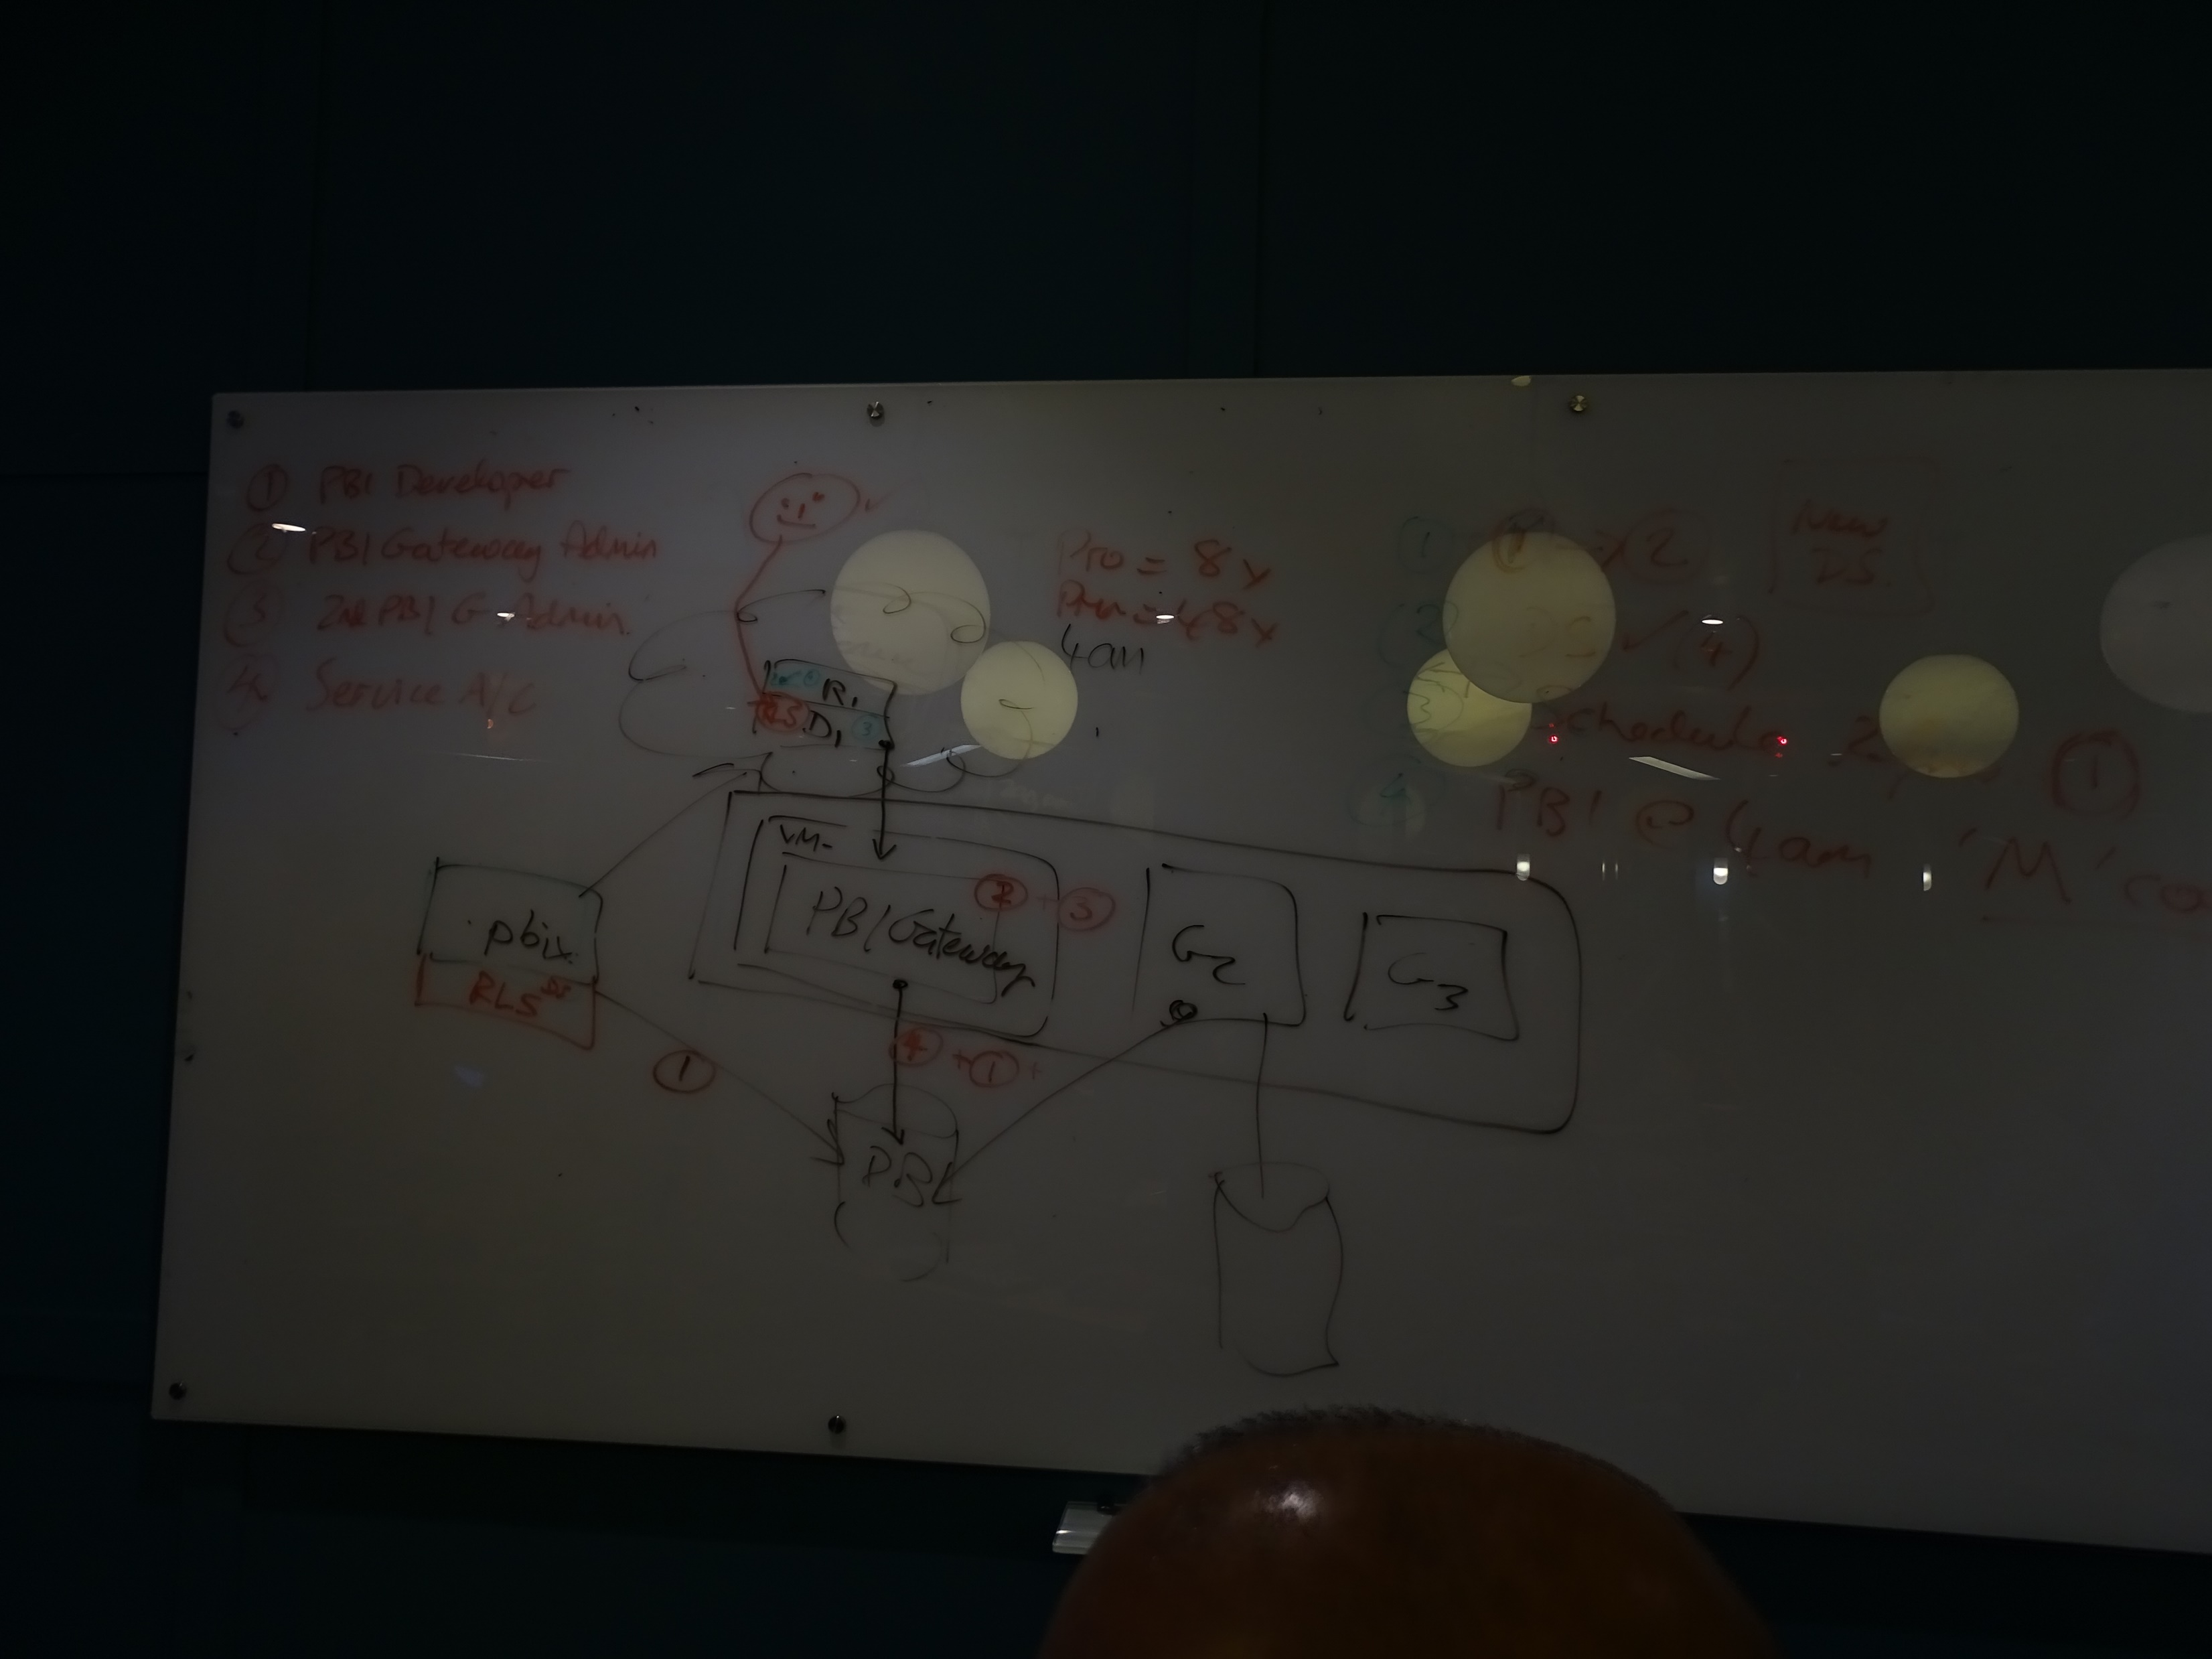 ① PBI Developer
② PBI Gateway Admin
③ 2nd PBI G Admin
④ Service A/C
Pro = 8x
Prem = 48x
4am
R1
RLS D1 ③
VM
PBI Gateway
② + ③
G2
G3
.pbix
RLS
①
④ + ① +
DBL
① ① → ②
New
DS
② DS ✓ (4)
③ Schedule
①
④ PBI @ 4am 'M' co